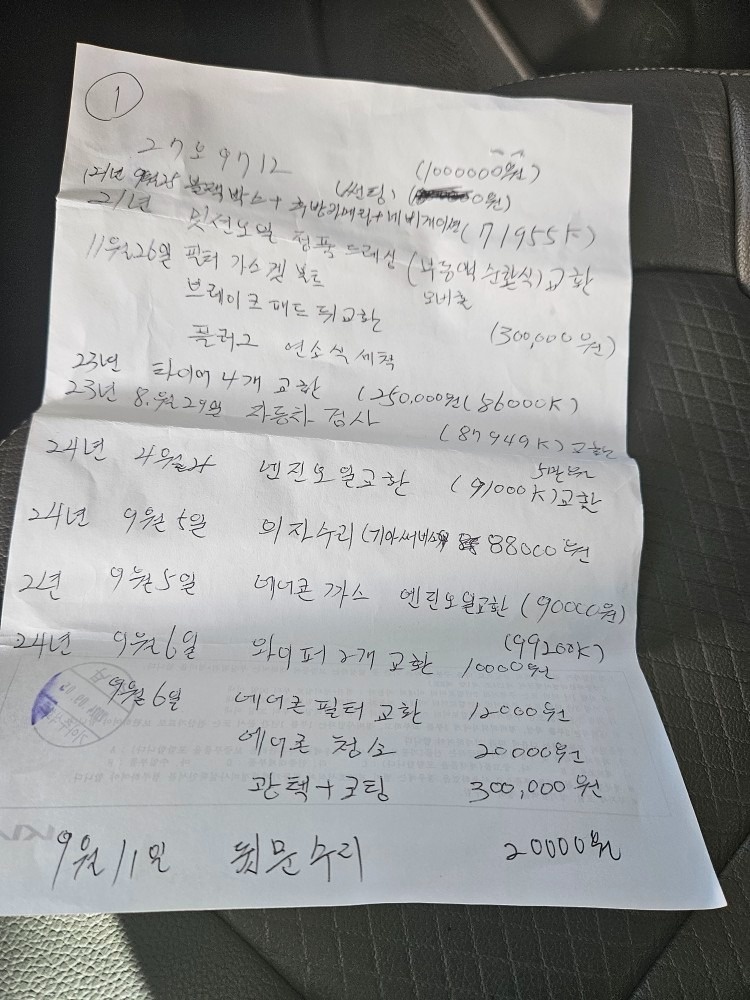 ①
27오9712 (1000000원)
21년 9월25 블랙박스+후방카메라+네비게이션 (썬팅) 0원)
21년 밋션오일 점푹 드레싱 (71955K)
11월26일 필터 가스켓 볼트 (부동액순환식)교환
브레이크패드 뒤교환 모비스
플러그 연소식세척 (300,000원)
23년 타이어 4개 교환 (250,000원(86000K)
23년 8.월29일 자동차검사 (87949K)교환
5만원
24년 4월 엔진오일교환 (91000K)교환
24년 9월5일 의자수리(기아써비스 88000원
2년 9월5일 에어콘 까스 엔진오일교환 (90000원)
(99200K)
24년 9월6일 와이퍼 2개 교환 10000원
9월6일 에어콘필터교환 12000원
에어콘 청소 20000원
광택+코팅 300,000원
9월11일 뒷문수리 20000원